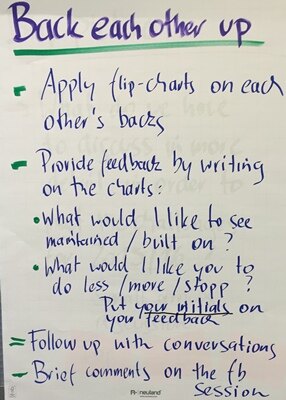 Back each other up
- Apply flip-charts on each
other's backs
- Provide feedback by writing
on the charts:
• What would I like to see
maintained / built on ?
• What would I like you to
do less / more / stopp ?
Put your initials on
your feedback
= Follow up with conversations
- Brief comments on the fb
session
neuland